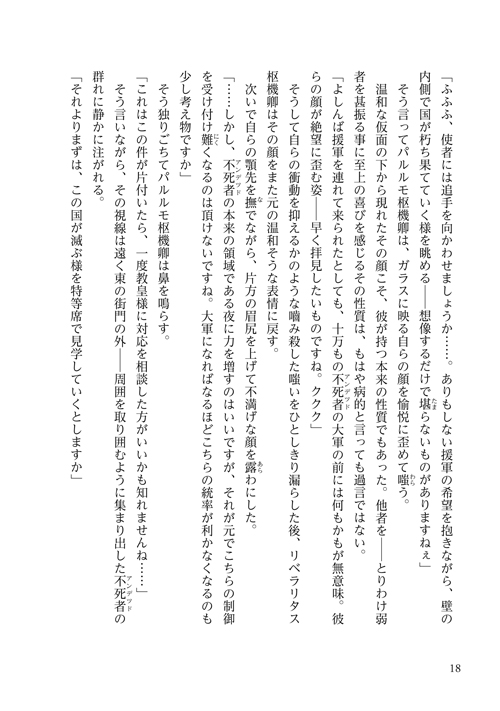 「ふふふ、使者には追手を向かわせましょうか……。ありもしない援軍の希望を抱きながら、壁の
内側で国が朽ち果てていく様を眺める――想像するだけで堪らないものがありますねぇ」
そう言ってパルルモ枢機卿は、ガラスに映る自らの顔を愉悦に歪めて嗤う。
温和な仮面の下から現れたその顔こそ、彼が持つ本来の性質でもあった。他者を――とりわけ弱
者を甚振る事に至上の喜びを感じるその性質は、もはや病的と言っても過言ではない。
「よしんば援軍を連れて来られたとしても、十万もの不死者の大軍の前には何もかもが無意味。彼
らの顔が絶望に歪む姿――早く拝見したいものですね。ククク」
そうして自らの衝動を抑えるかのような嚙み殺した嗤いをひとしきり漏らした後、リベラリタス
枢機卿はその顔をまた元の温和そうな表情に戻す。
次いで自らの顎先を撫でながら、片方の眉尻を上げて不満げな顔を露わにした。
「……しかし、不死者の本来の領域である夜に力を増すのはいいですが、それが元でこちらの制御
を受け付け難くなるのは頂けないですね。大軍になればなるほどこちらの統率が利かなくなるのも
少し考え物ですか」
そう独りごちてパルルモ枢機卿は鼻を鳴らす。
「これはこの件が片付いたら、一度教皇様に対応を相談した方がいいかも知れませんね……」
そう言いながら、その視線は遠く東の街門の外――周囲を取り囲むように集まり出した不死者の
群れに静かに注がれる。
「それよりまずは、この国が滅ぶ様を特等席で見学していくとしますか」
18